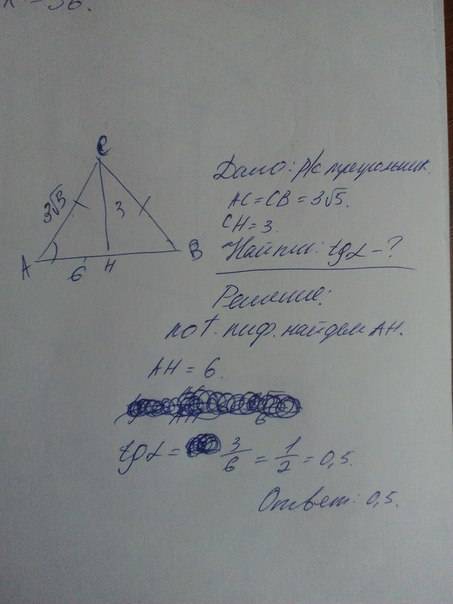 –36.
C
3√5
3
A
6
H
B
Дано: р/с треугольник.
AC=CB=3√5.
CH=3.
Найти: tgα–?
Решение:
по т. пиф. найдем AH.
AH=6.
tgα= 3/6 = 1/2 = 0,5.
Ответ: 0,5.